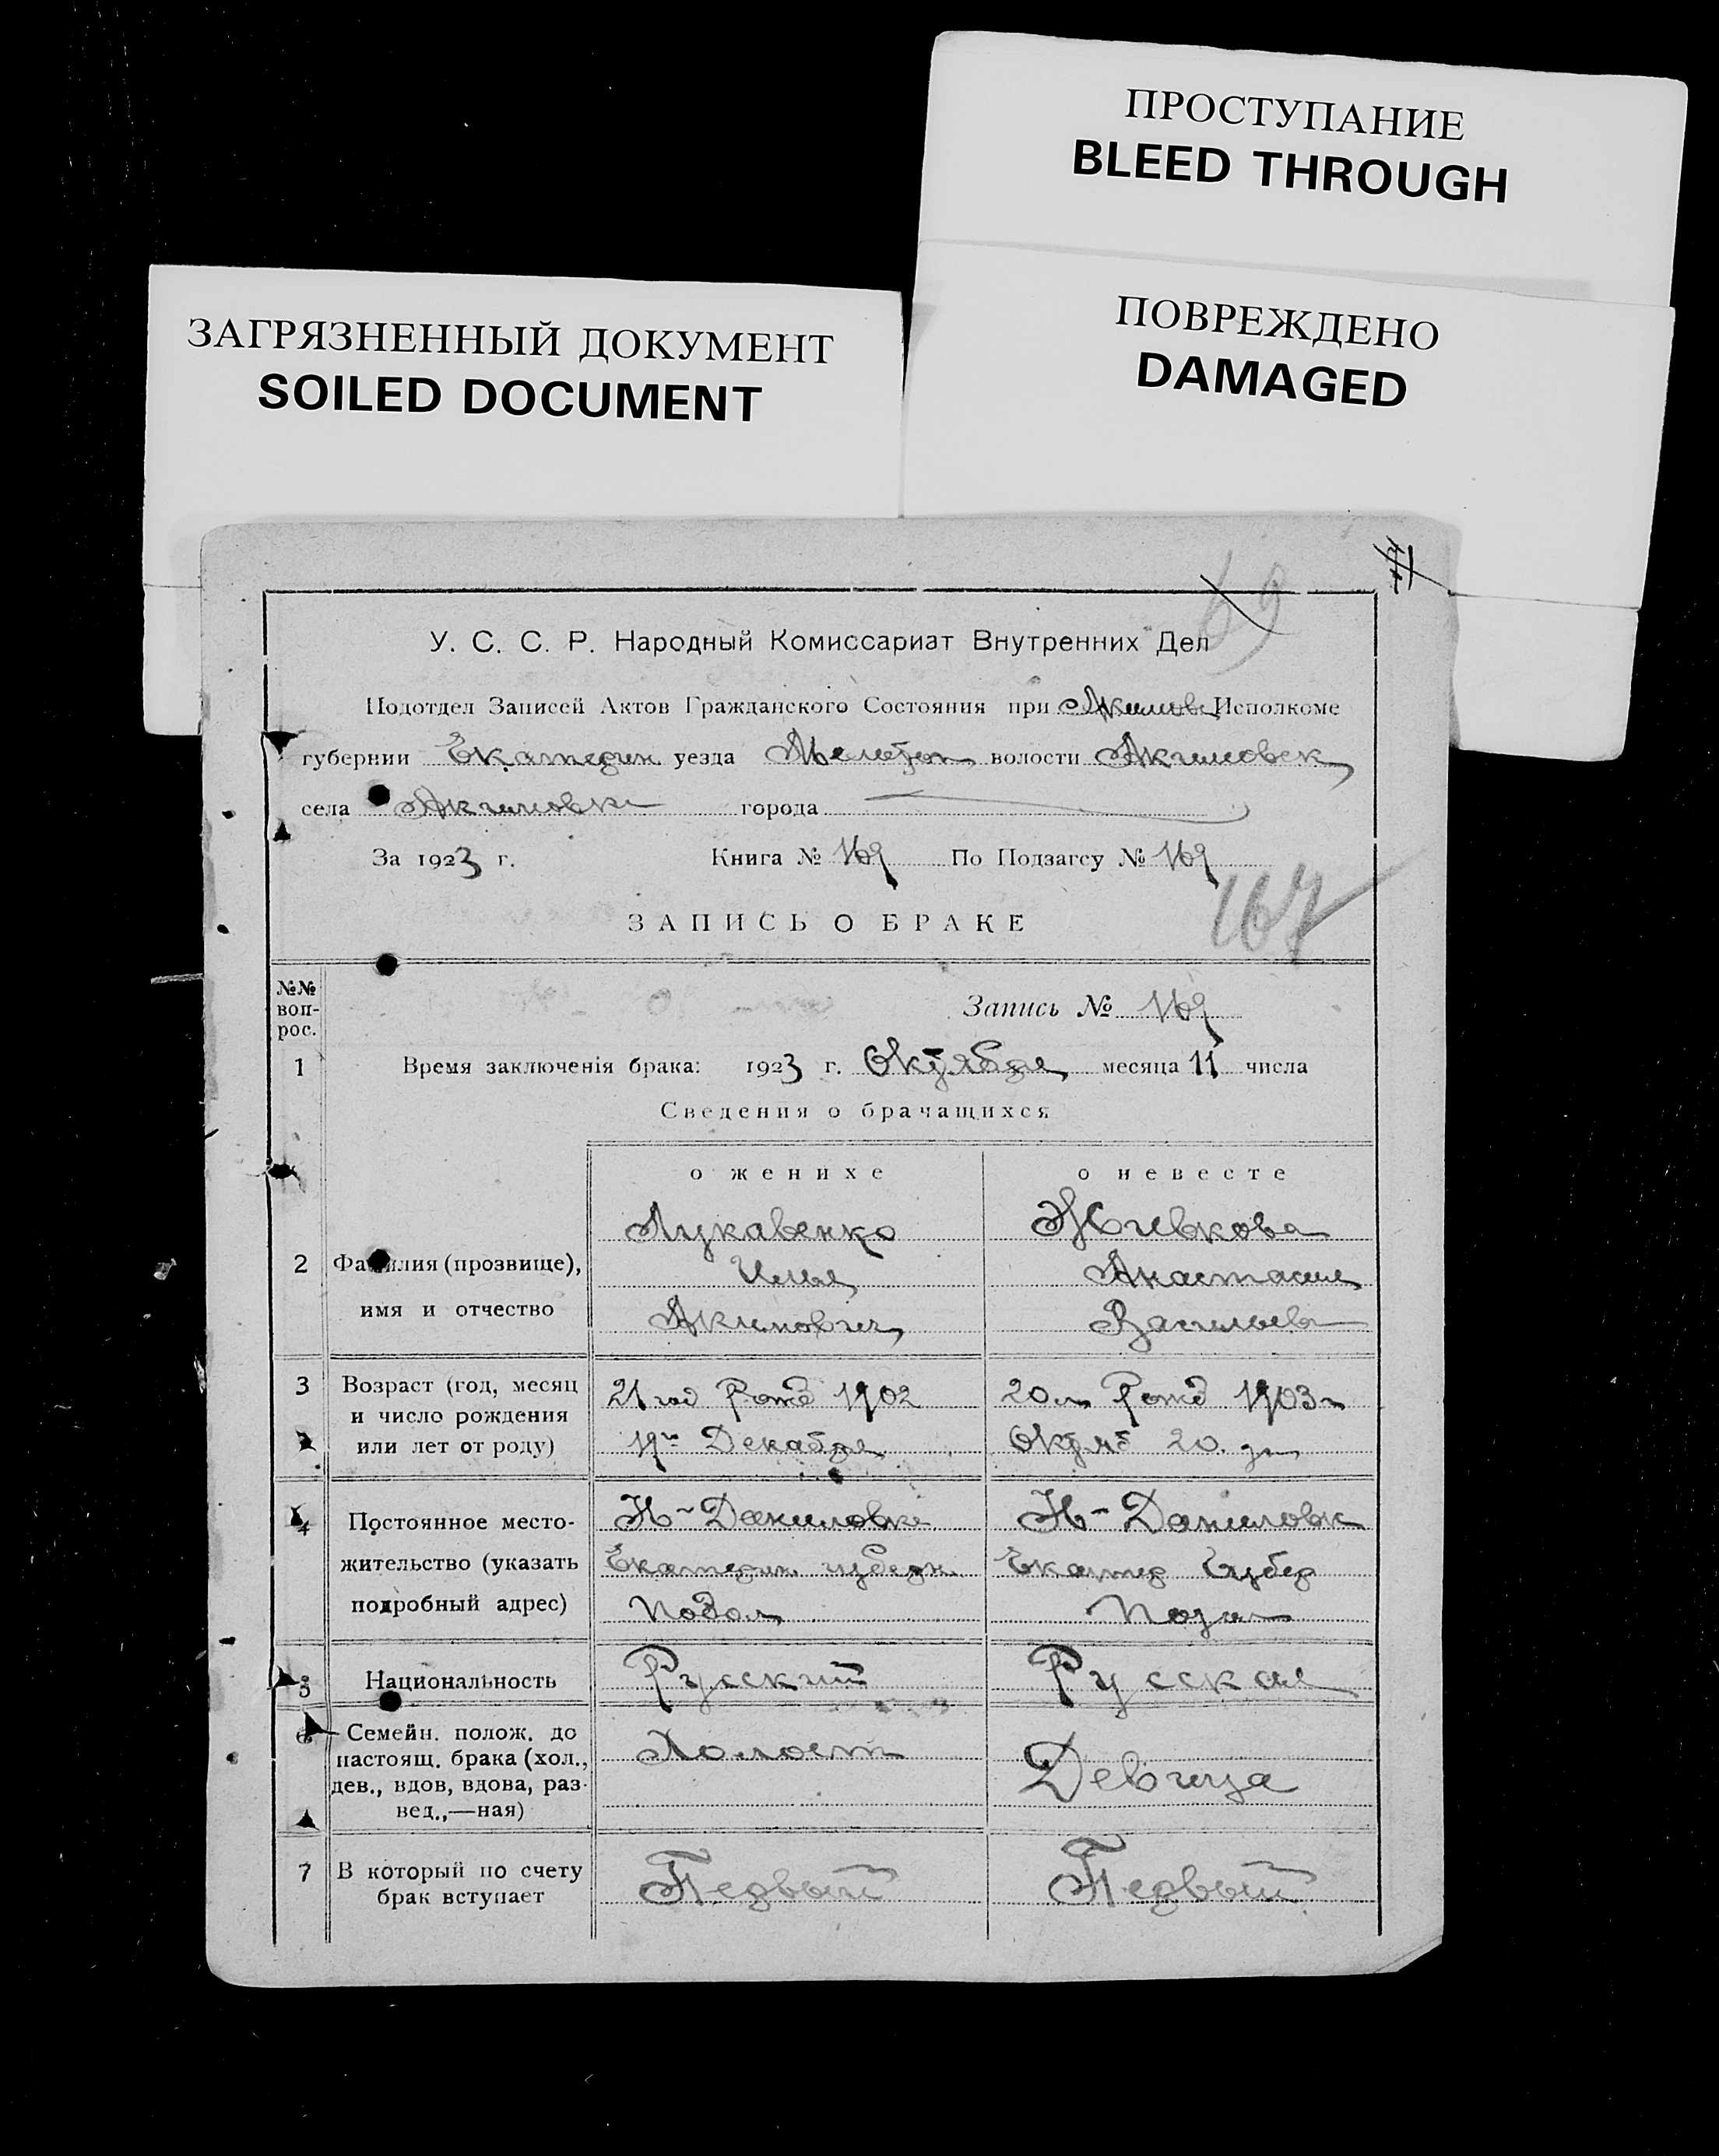 ПРОСТУПАНИЕ
BLEED THROUGH
ПОВРЕЖДЕНО
DAMAGED
ЗАГРЯЗНЕННЫЙ ДОКУМЕНТ
SOILED DOCUMENT
69
У. С. С. Р. Народный Комиссариат Внутренних Дел
Подотдел Записей Актов Гражданского Состояния при Акимов Исполкоме
губернии Екатерин уезда Мелитоп волости Акимовск
села Акимовка города
За 1923 г. Книга № 169 По Подзагсу № 169
167
ЗАПИСЬ О БРАКЕ
№№ воп-
рос.
Запись № 169
1 Время заключенія брака: 1923 г. Октября месяца 11 числа
Сведения о брачащихся
о женихе о невесте
Лукавенко Живкова
2 Фамилия (прозвище), Илья Анастасия
имя и отчество Акимович Васильев
3 Возраст (год, месяц 21 год Рожд 1902 20 л Рожд 1903 г
и число рождения
или лет от роду) 19го Декабря Октяб 20 дн
4 Постоянное место- Н-Даниловка Н-Даниловк
жительство (указать Екатерин губерн Екатер Губер
подробный адрес)
5 Национальность Русский Русская
6 Семейн. полож. до
настоящ. брака (хол., Холост Девица
дев., вдов, вдова, раз-
вед.,—ная)
7 В который по счету Первый Первый
брак вступает